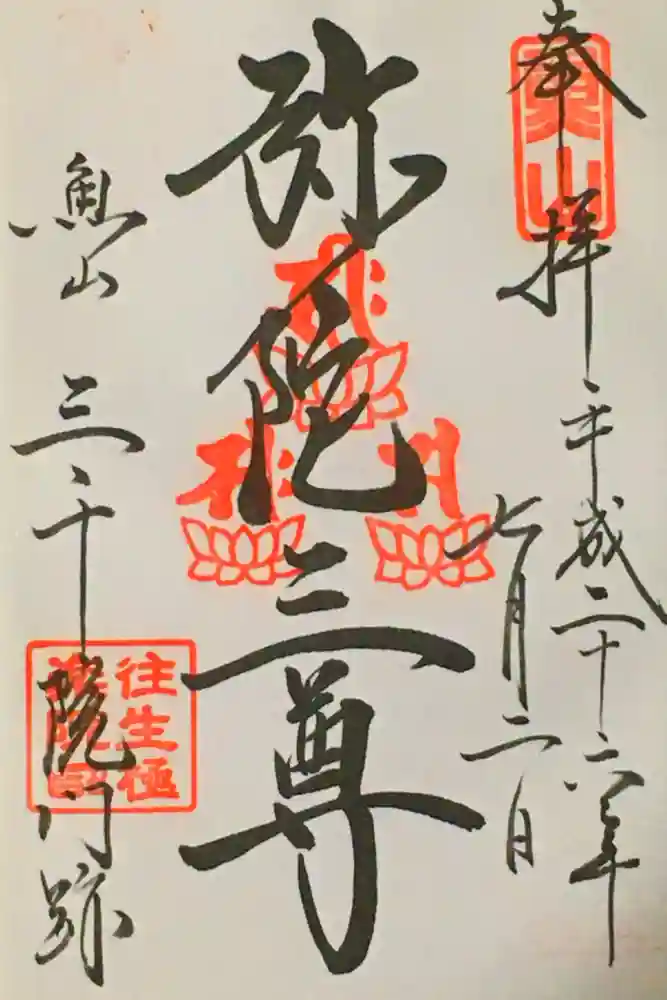 奉拝
平成二十六年
七月二日
弥陀三尊
魚山 三千院門跡
往生極